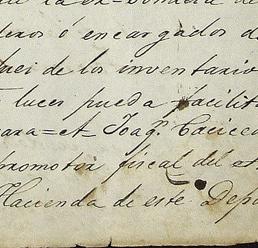 deros ó encargados d
de los inventario
luces pueda facilit
ara=A= Joaqⁿ. Caiced
promotor fiscal del e
Hacienda de este Dep